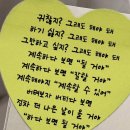 귀찮지? 그래도 해야 돼
하기 싫지? 그래도 해야 돼
그만하고 싶지? 그래도 해야 돼
계속하다 보면 "될 거야"
계속하다 보면 "잘할 거야"
계속해야지 "계속할 수 있어"
버텨보자 버티다 보면
정말 더 나은 날이 올 거야
"하다 보면 될 거야"